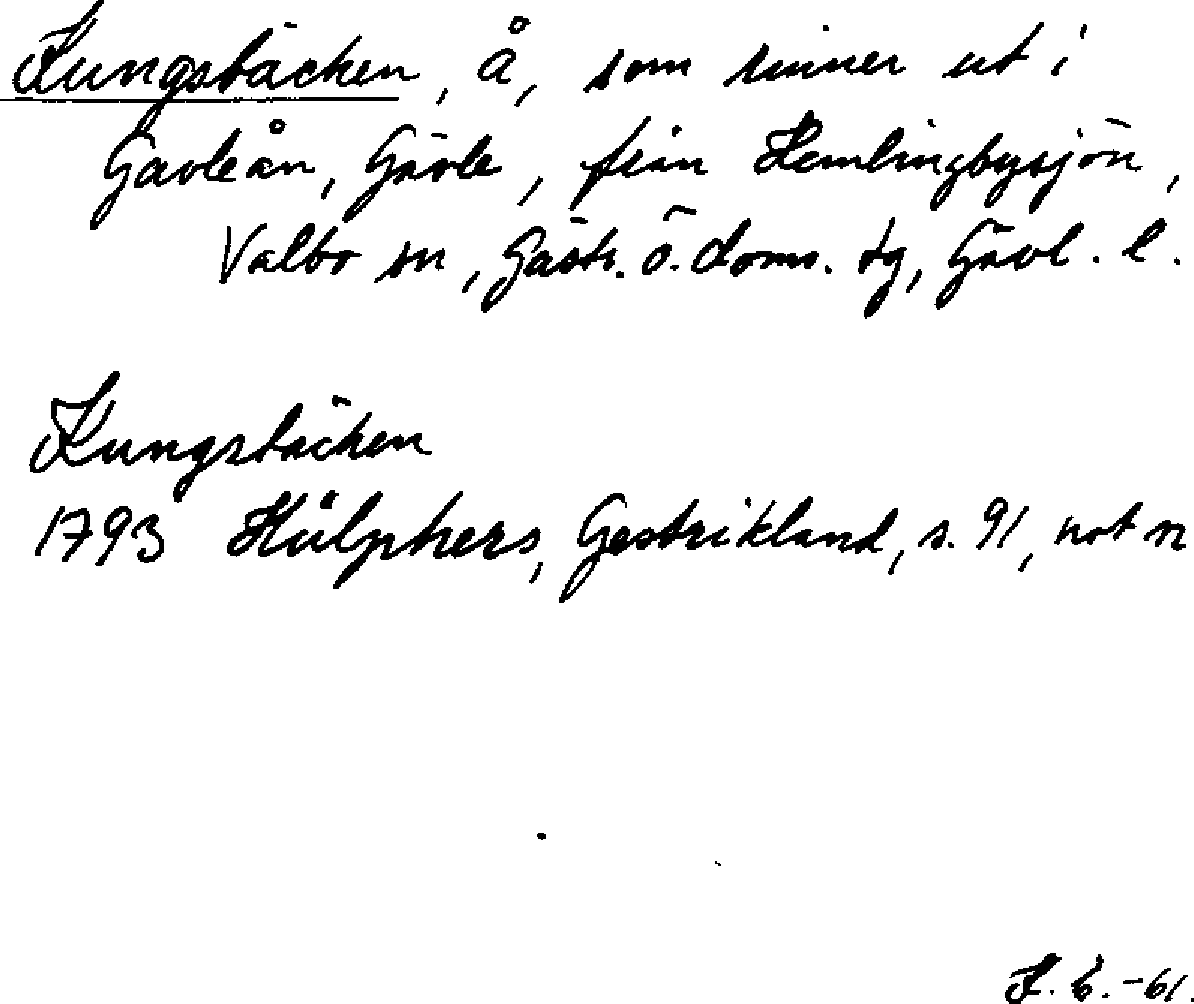 Kungsbäcken, å, som rinner ut i
Gavleån, Gävle, från Hemlingbysjön,
Valbo sn, Gästr. ö. doms. tg, Gävl. l.
Kungsbäcken
1793 Hülphers, Gestrikland, s. 91, not n
-61.